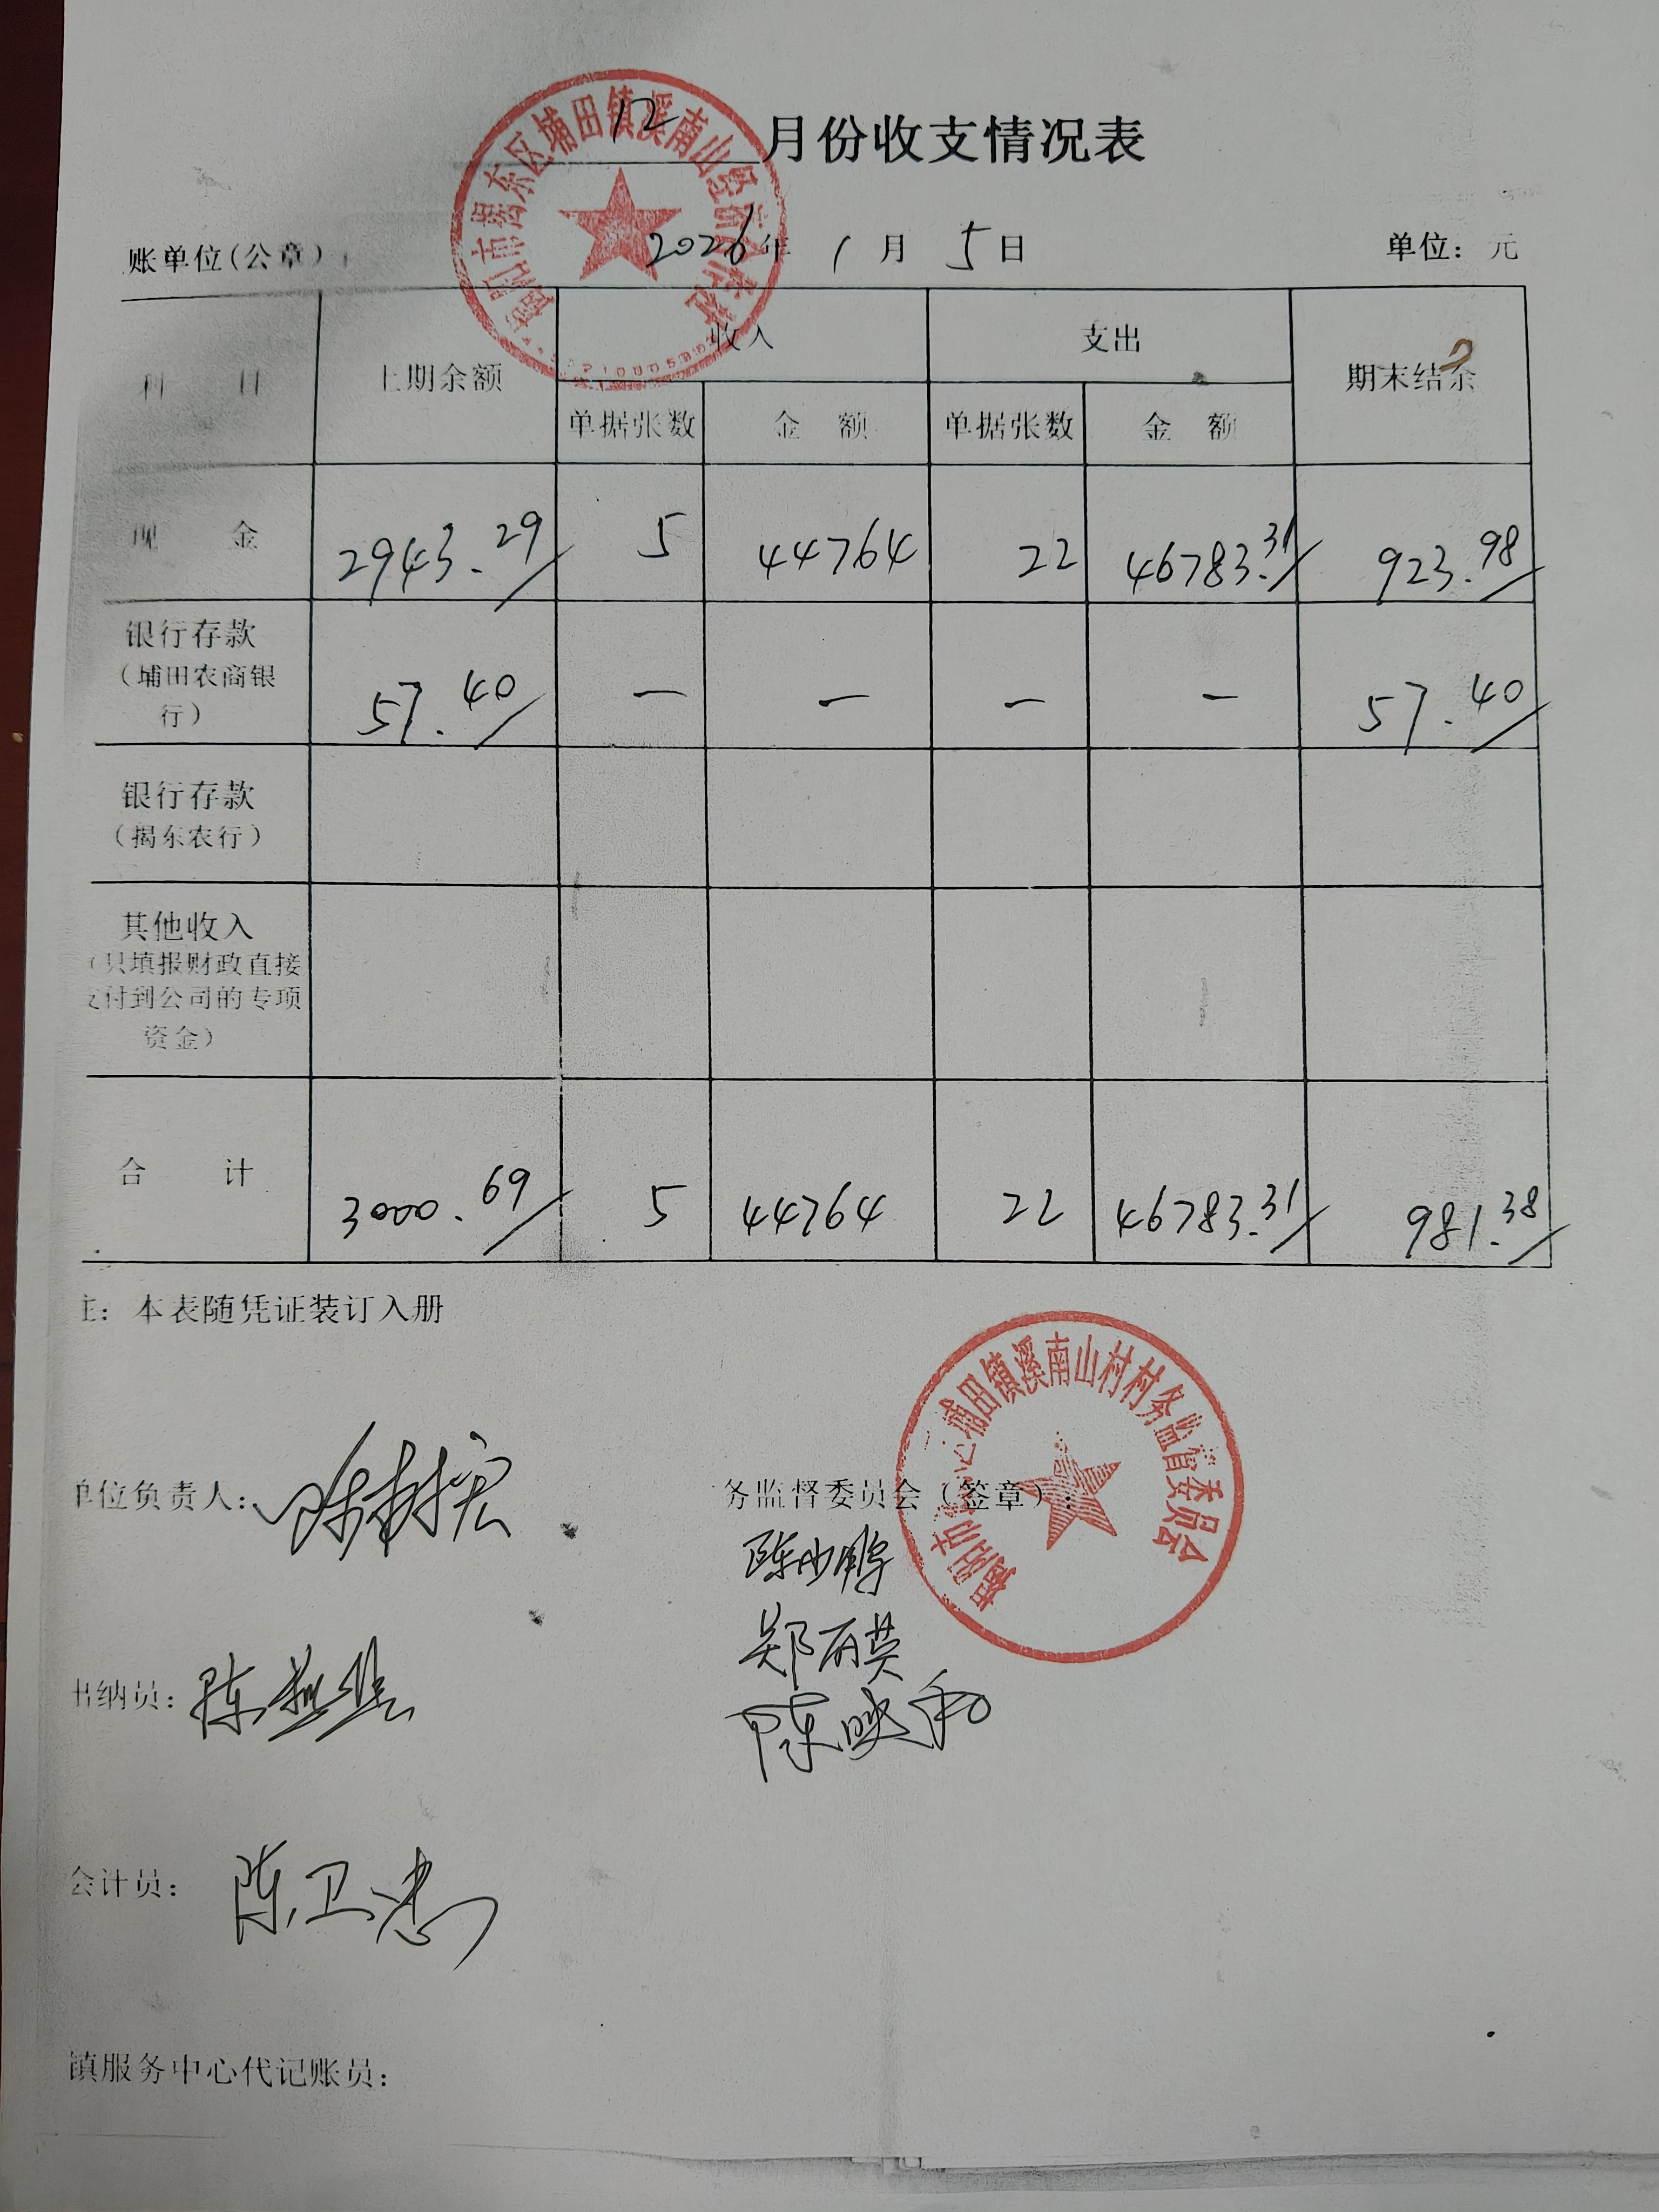 12月份收支情况表
揭阳市揭东区埔田镇溪南山经济合作社
账单位(公章)
2026年1月5日
单位：元
科 目 上期余额 收入 支出 期末结余
单据张数 金 额 单据张数 金 额
现 金 2943.29 5 44764 22 46783.31 923.98
银行存款
（埔田农商银
行）
57.40 — — — — 57.40
银行存款
（揭东农行）
其他收入
（只填报财政直接
支付到公司的专项
资金）
合 计 3000.69 5 44764 22 46783.31 981.38
注：本表随凭证装订入册
单位负责人：
务监督委员会（签章）：
埔田镇溪南山村村务监督委员会
郑丽英
陈映和
出纳员：陈
会计员：陈卫忠
镇服务中心代记账员：